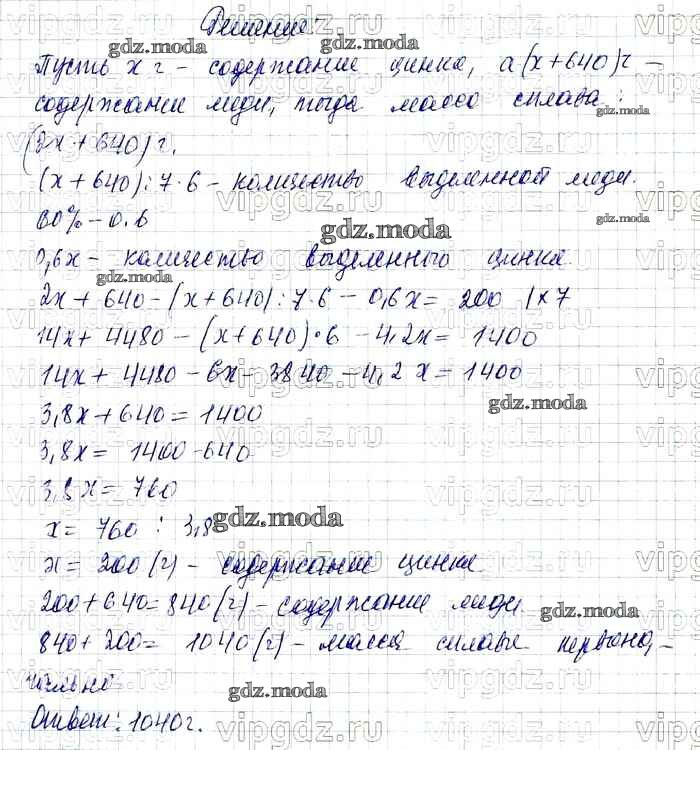 Решение
gdz.moda
Пусть x г – содержание цинка, а (x+640) г –
содержание меди, тогда масса сплава:
(2x+640) г.
(x+640):7·6 – количество выделенной меди.
60% – 0.6
gdz.moda
0,6x – количество выделенного цинка
2x+640-(x+640):7·6-0,6x= 200 |x7
14x+4480-(x+640)·6-4,2x= 1400
14x+4480-6x-3840-4,2x=1400
3,8x+640=1400
gdz.moda
3,8x= 1400-640
3,8x=760
x= 760 : 3,8
gdz.moda
x= 200 (г) – содержание цинка.
200+640=840 (г) – содержание меди.
gdz.moda
840+200= 1040 (г) – масса сплава первона-
чально
gdz.moda
Ответ: 1040 г.
vipgdz.ru